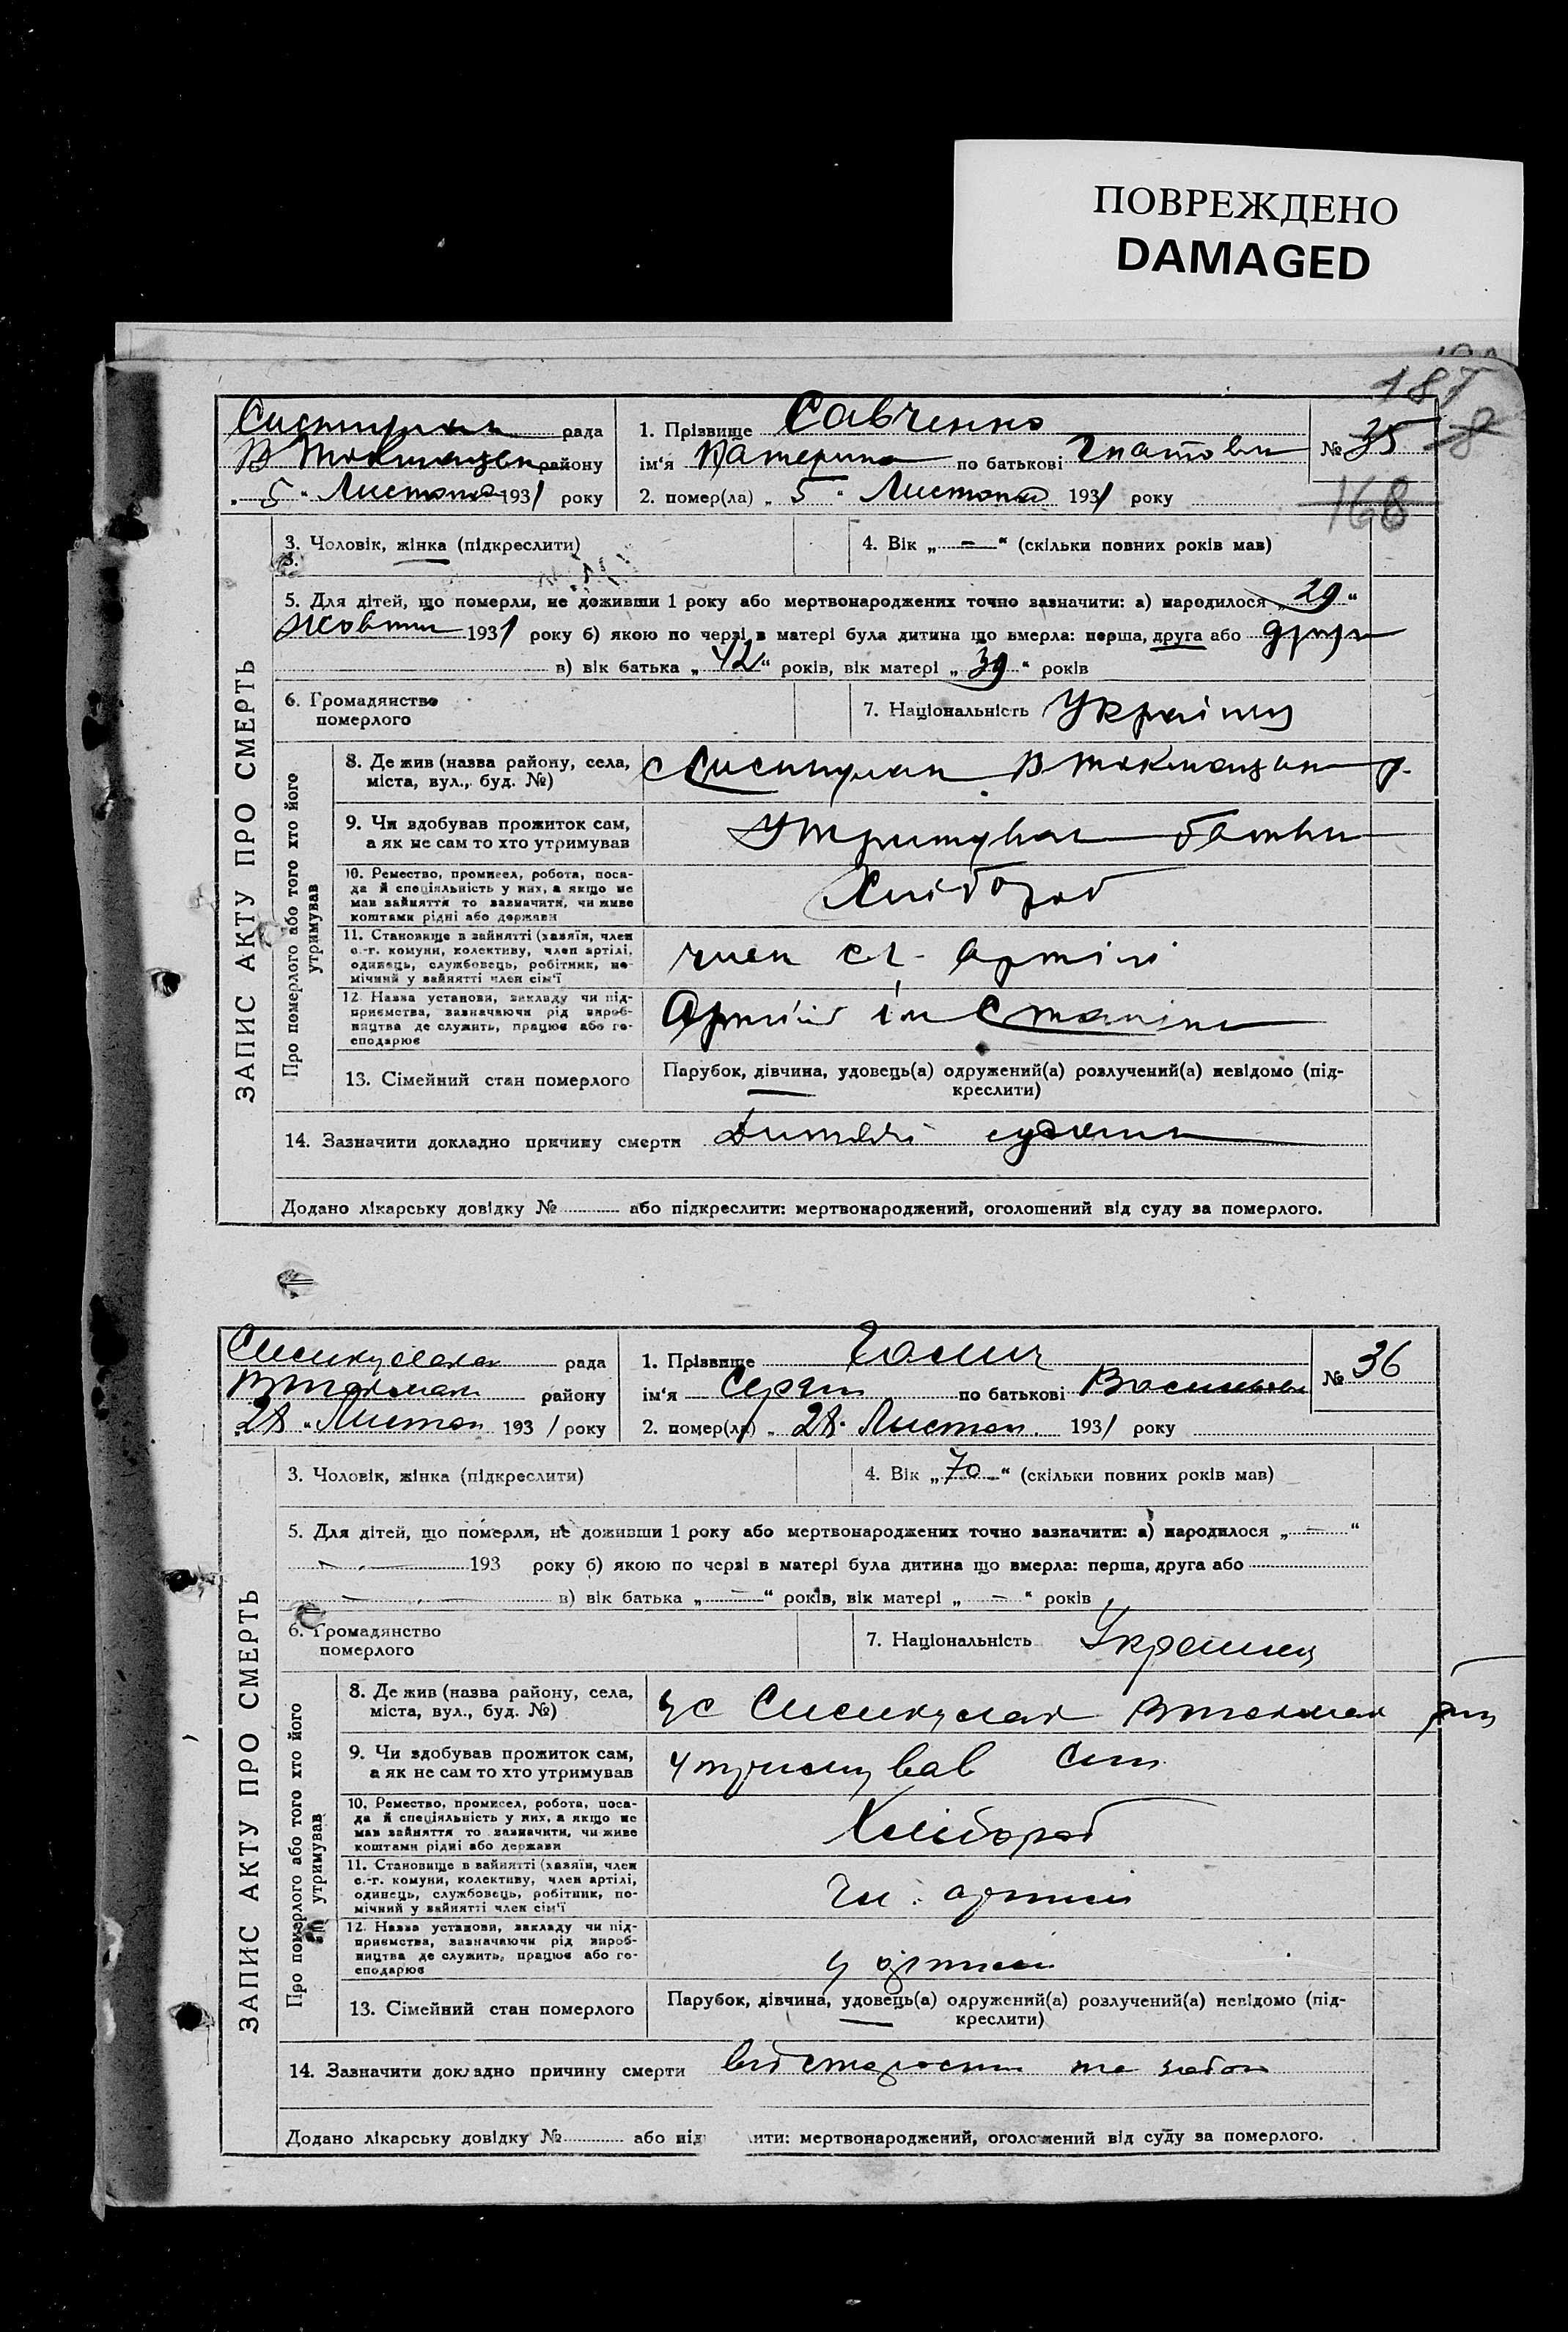 ПОВРЕЖДЕНО
DAMAGED
187
рада
1. Прізвище Савченко
№ 35
району
ім'я Катерина по батькові Гнатовн
„ 5 " Листопад 1931 року
2. помер(ла) „ 5 " Листопад 1931 року
168
3. Чоловік, жінка (підкреслити)
4. Вік „ – " (скільки повних років мав)
5. Для дітей, що померли, не доживши 1 року або мертвонароджених точно зазначити: а) народилося „ 29 "
Жовтня 1931 року б) якою по черзі в матері була дитина що вмерла: перша, друга або друга
в) вік батька „ 42 " років, вік матері „ 39 " років
6. Громадянство
померлого
7. Національність Українц
ЗАПИС АКТУ ПРО СМЕРТЬ
Про померлого або того хто його
утримував
8. Де жив (назва району, села,
міста, вул., буд. №)
9. Чи здобував прожиток сам,
а як не сам то хто утримував
Утримував батьки
10. Ремество, промисел, робота, поса-
да й спеціяльність у них, а якщо не
мав зайняття то зазначити, чи живе
коштами рідні або держави
Хлібороб
11. Становище в зайнятті (хазяїн, член
с.-г. комуни, колективу, член артілі,
одинець, службовець, робітник, по-
мічний у зайнятті член сім'ї
член сг. артілі
12. Назва установи, закладу чи під-
приємства, зазначаючи рід вироб-
ництва де служить, працює або го-
сподарює
Артіль ім Сталіна
13. Сімейний стан померлого
Парубок, дівчина, удовець(а) одружений(а) розлучений(а) невідомо (під-
креслити)
14. Зазначити докладно причину смерти Дитячі
Додано лікарську довідку № або підкреслити: мертвонароджений, оголошений від суду за померлого.
рада
1. Прізвище Галич
№ 36
району
ім'я Сергій по батькові Васильов
28 " Листоп 1931 року
2. помер(ла) „ 28 " Листоп 1931 року
3. Чоловік, жінка (підкреслити)
4. Вік „ 70 " (скільки повних років мав)
5. Для дітей, що померли, не доживши 1 року або мертвонароджених точно зазначити: а) народилося „ – "
193 року б) якою по черзі в матері була дитина що вмерла: перша, друга або
в) вік батька „ – " років, вік матері „ – " років
6. Громадянство
померлого
7. Національність Українец
ЗАПИС АКТУ ПРО СМЕРТЬ
Про померлого або того хто його
утримував
8. Де жив (назва району, села,
міста, вул., буд. №)
9. Чи здобував прожиток сам,
а як не сам то хто утримував
утримував син
10. Ремество, промисел, робота, поса-
да й спеціяльність у них, а якщо не
мав зайняття то зазначити, чи живе
коштами рідні або держави
Хлібороб
11. Становище в зайнятті (хазяїн, член
с.-г. комуни, колективу, член артілі,
одинець, службовець, робітник, по-
мічний у зайнятті член сім'ї
Чл. артілі
12. Назва установи, закладу чи під-
приємства, зазначаючи рід вироб-
ництва де служить, працює або го-
сподарює
у артілі
13. Сімейний стан померлого
Парубок, дівчина, удовець(а) одружений(а) розлучений(а) невідомо (під-
креслити)
14. Зазначити докладно причину смерти від старости
Додано лікарську довідку № або під ити: мертвонароджений, оголошений від суду за померлого.